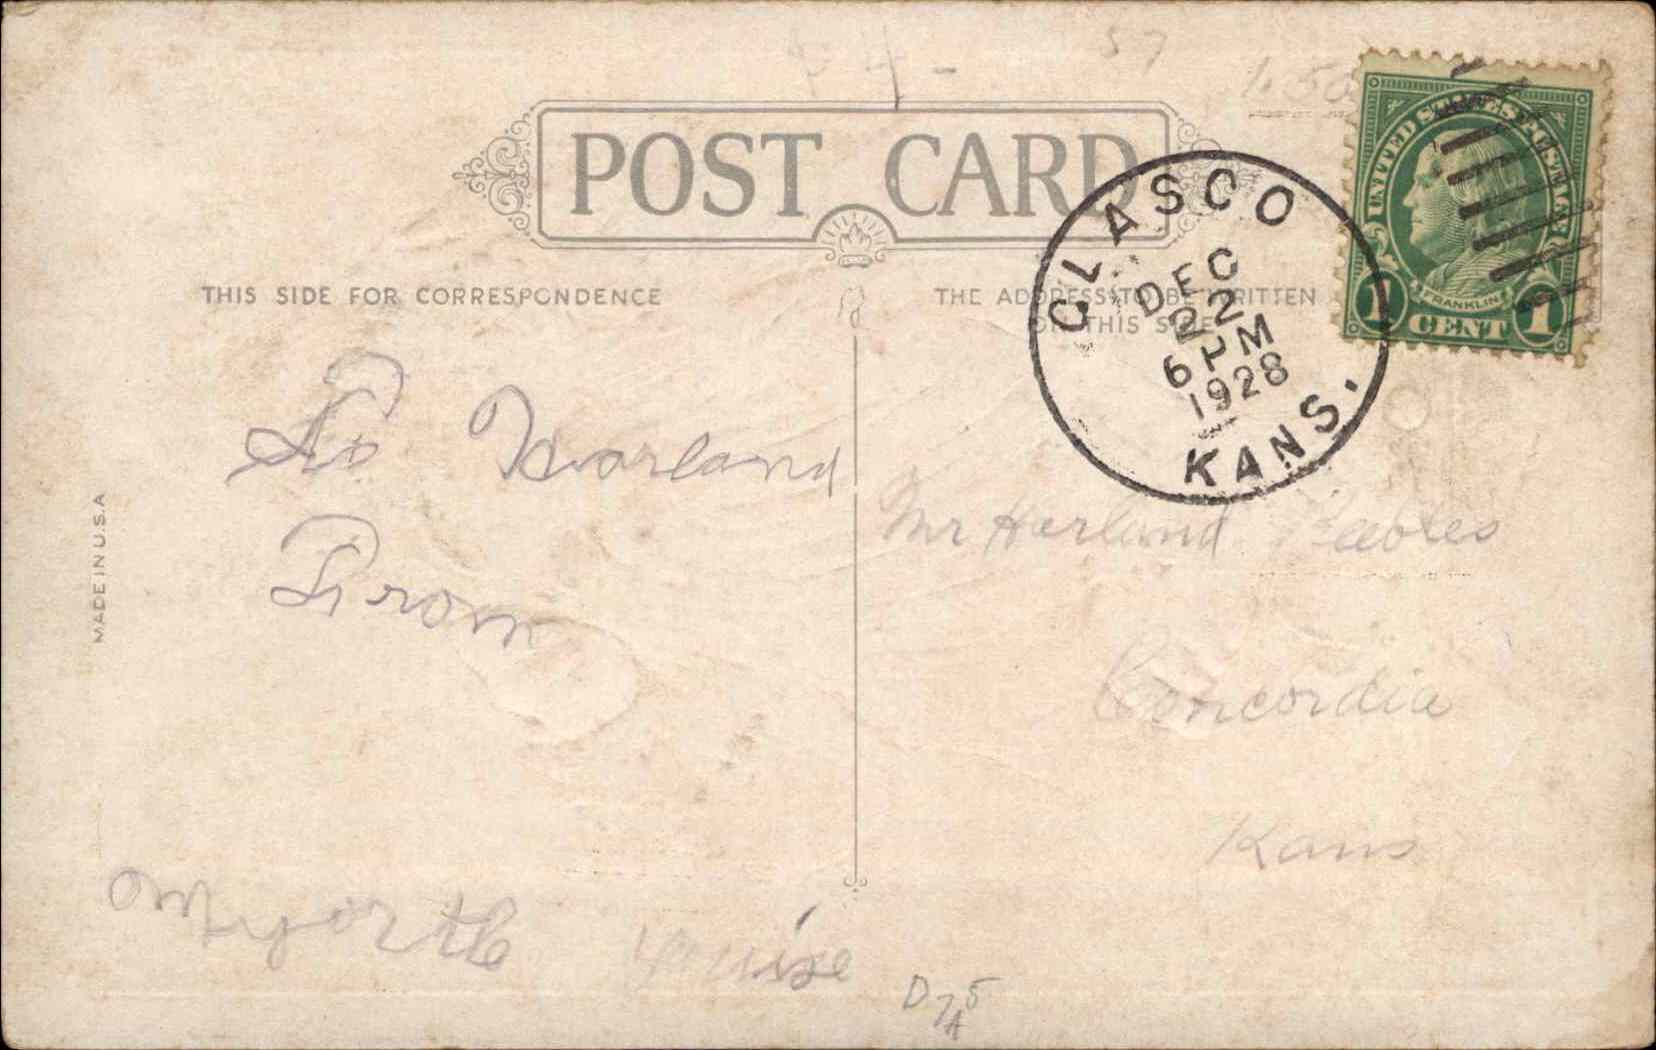 57
1.50
POST CARD
UNITED STATES POSTAGE
FRANKLIN
1 CENT 1
GLASCO
DEC
22
6 PM
1928
KANS.
THIS SIDE FOR CORRESPONDENCE
THE ADDRESS TO BE WRITTEN
ON THIS SIDE
MADE IN U.S.A
To Harland
From
Louise
Mr Harland Peebles
Concordia
Kans
D 7 5
A